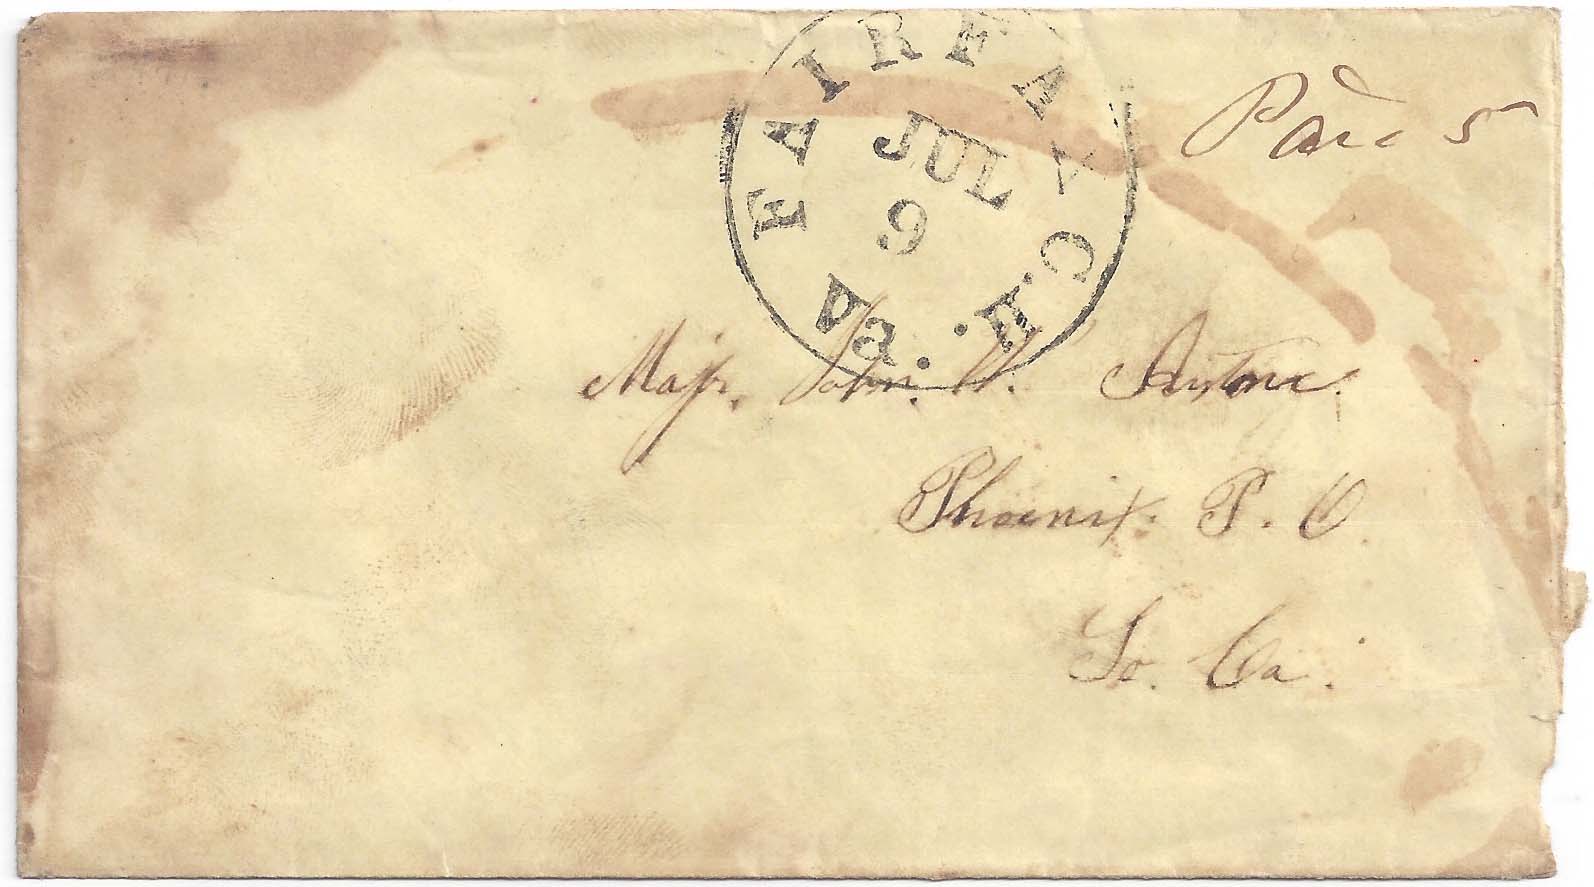 FAIRFAX C.H. Va.
JUL
9
Paid 5
Majr. John. W.
Phoenix P. O.
So. Ca.